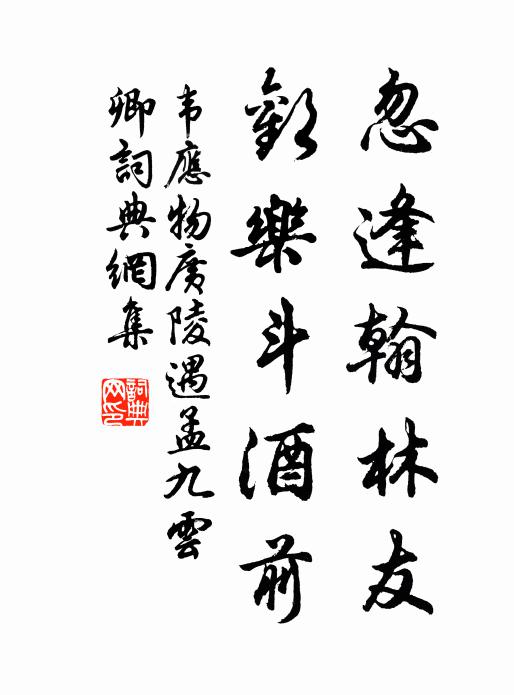 忽逢翰林友
歡樂斗酒前
韦應物廣陵遇孟九雲
卿詞典網集
詞典
网印